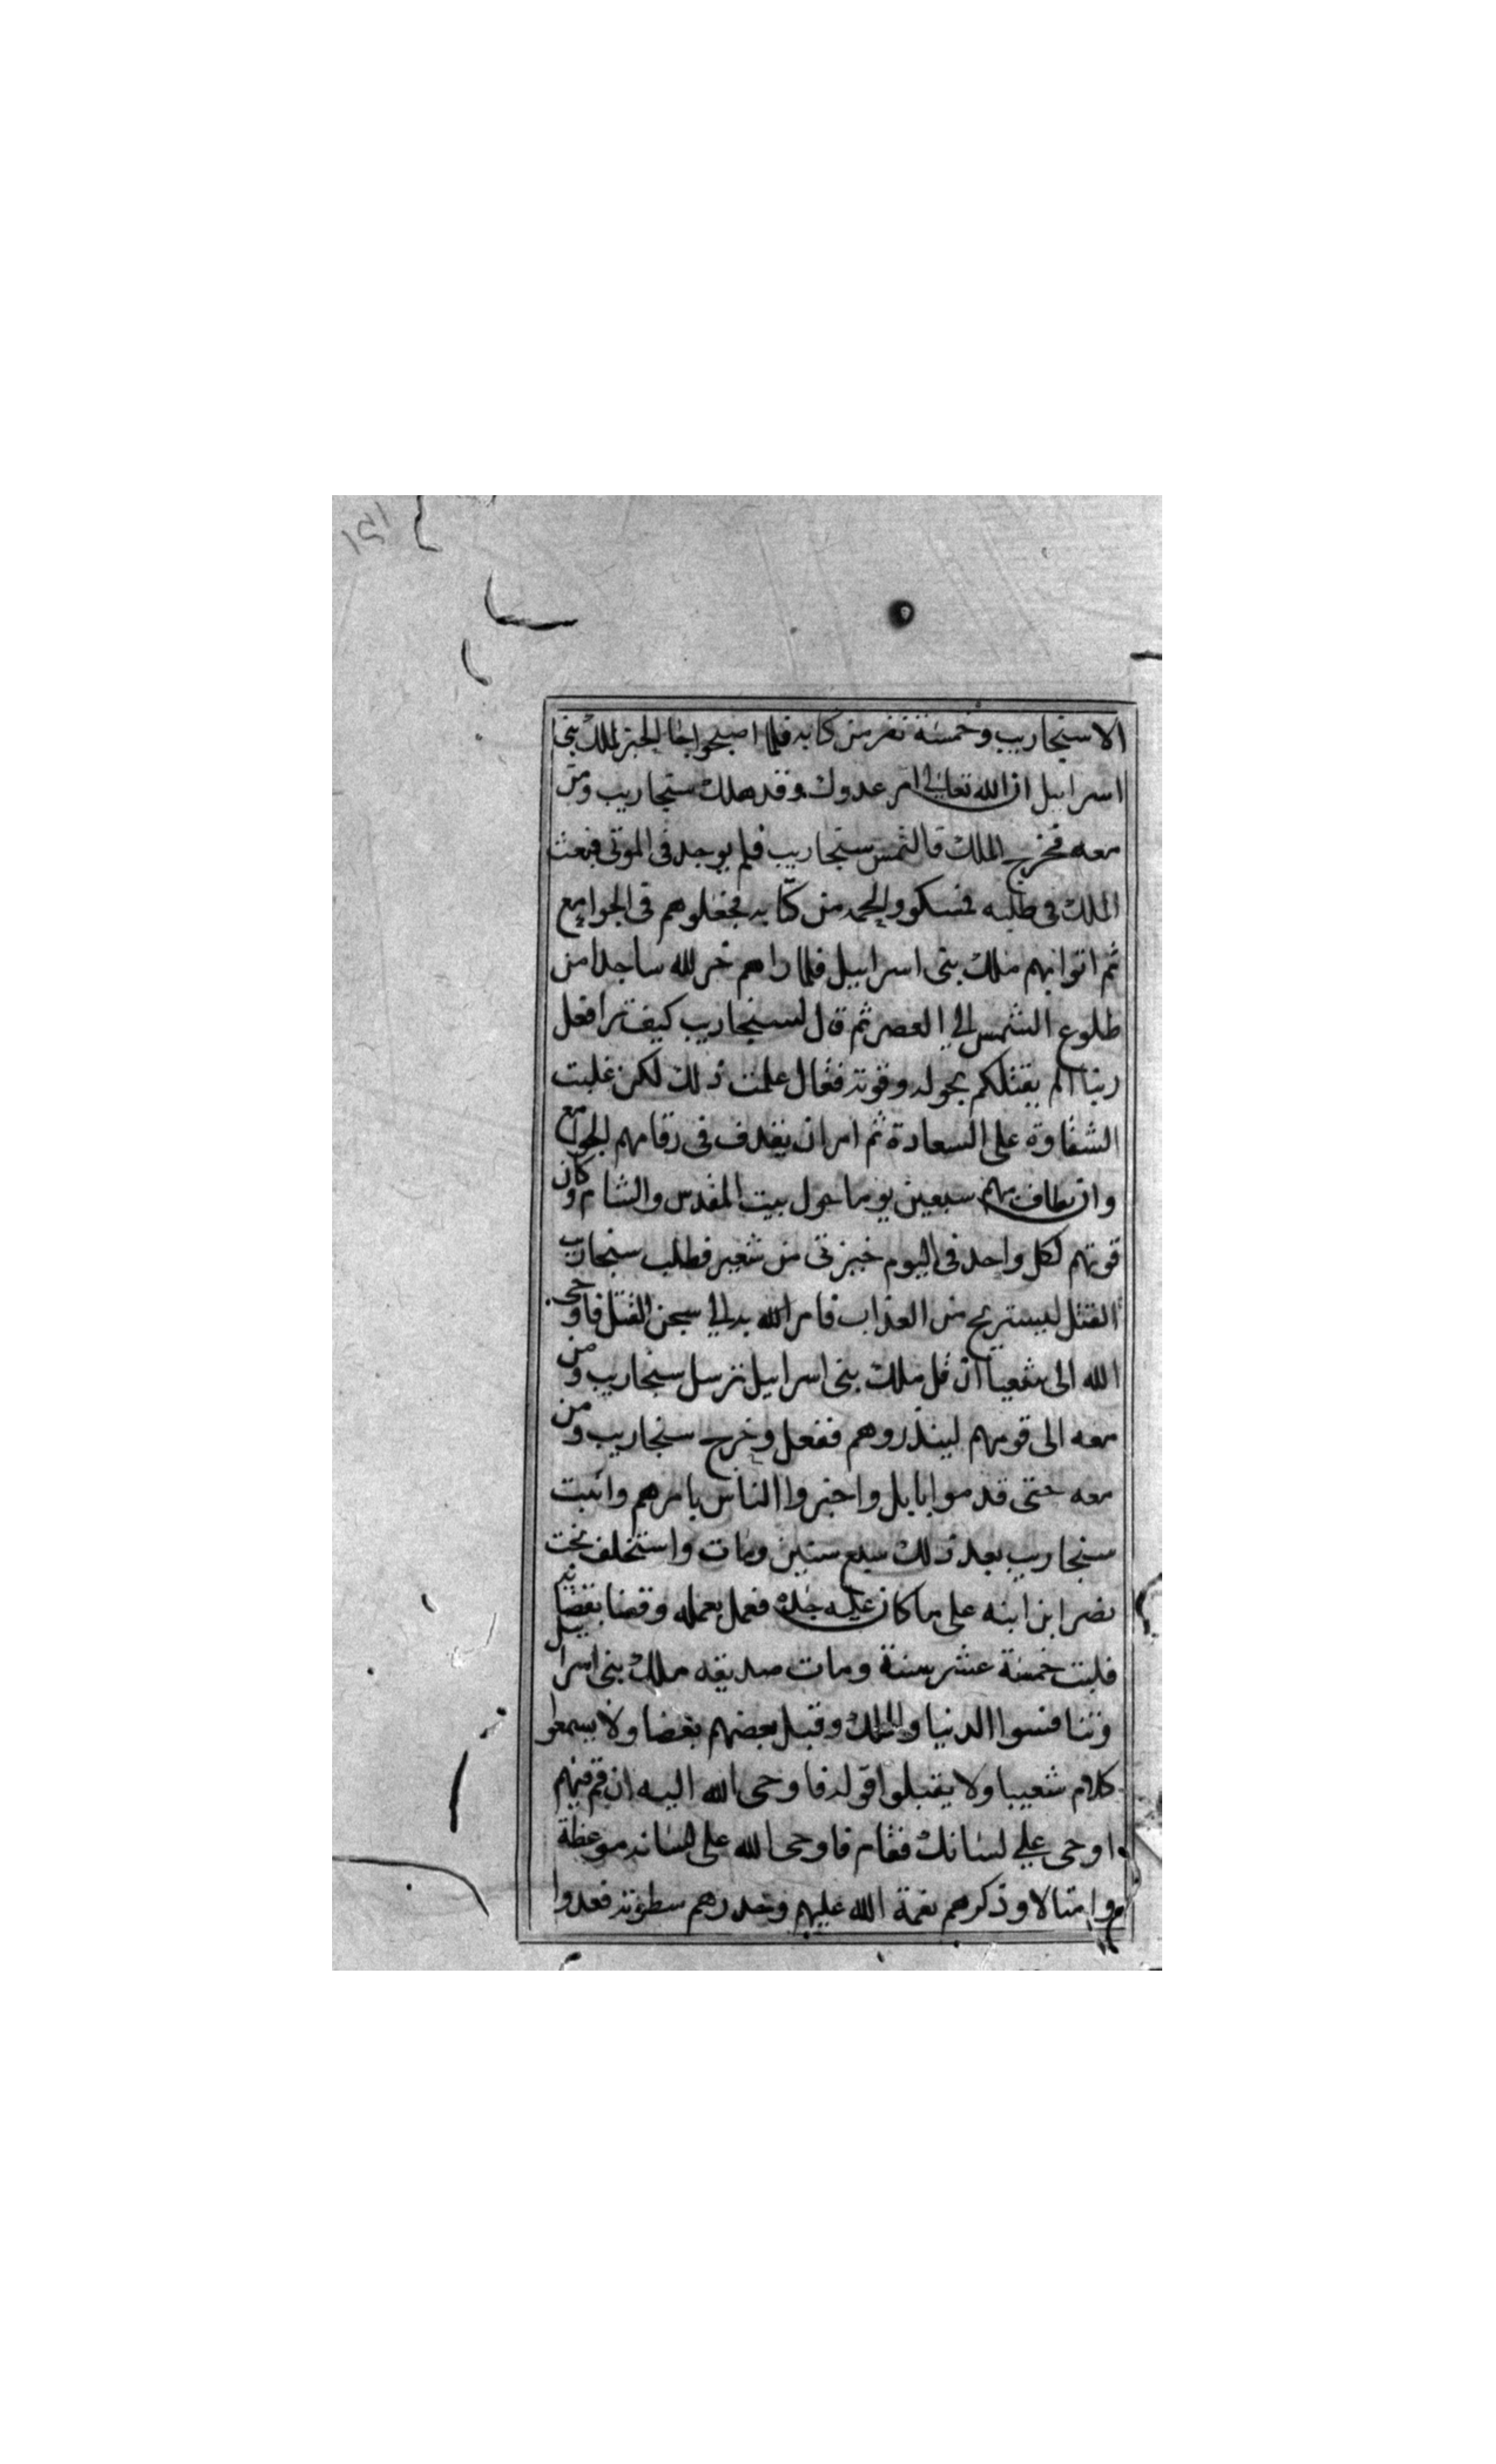 الا سنجاريب وخمسة نفر من كتابه فلما اصبحوا جا الخبر لملك بنى
اسراييل ان الله تعالى امر عدوك وقد هلك سنجاريب ومن
معه فخرج الملك فالتمس سنجاريب فلم يوجد فى الموتى فبعث
الملك فى طلبه فمسكوه والخمسه من كتابه فجعلوهم فى الجوامع
ثم اتوا بهم ملك بنى اسراييل فلما راهم خر لله ساجدا من
طلوع الشمس الى العصر ثم قال لسنجاريب كيف ترا فعل
ربنا الم يقتلكم بحوله وقوته فقال علمت ذلك لكن غلبت
الشقاوة على السعادة ثم امر ان يقدف فى رقابهم الجوامع
وان يطاف بهم سبعين يوما حول بيت المقدس والشام وكان
قوتهم لكل واحد فى اليوم خبزتى من شعير فطلب سنجاريب
القتل ليستريح من العذاب فامر الله به الى سجن القتل فاوحى
الله الى شعيبا ان قل لملك بنى اسراييل نرسل سنجاريب ومن
معه الى قومهم لينذروهم ففعل وخرج سنجاريب ومن
معه حتى قدموا بابل واخبروا الناس بامرهم واثبت
سنجاريب بعد ذلك سبع سنين ومات واستخلف بخت
نصر ابن ابنه على ما كان عليه جده فعمل بعمله وقضا بقضايه
فلبث خمسة عشر سنة ومات صديقه ملك بنى اسراييل
وتنافسوا الدنيا والملك وقتل بعضهم بعضا ولا يسمعوا
كلام شعيبا ولا يقبلوا قوله فاوحى الله اليه ان قم فيهم
اوحى على لسانك فقام فاوحى الله على لسانه موعظة
وامتالا وذكرهم نعمة الله عليهم وحدرهم سطوته فعدوا